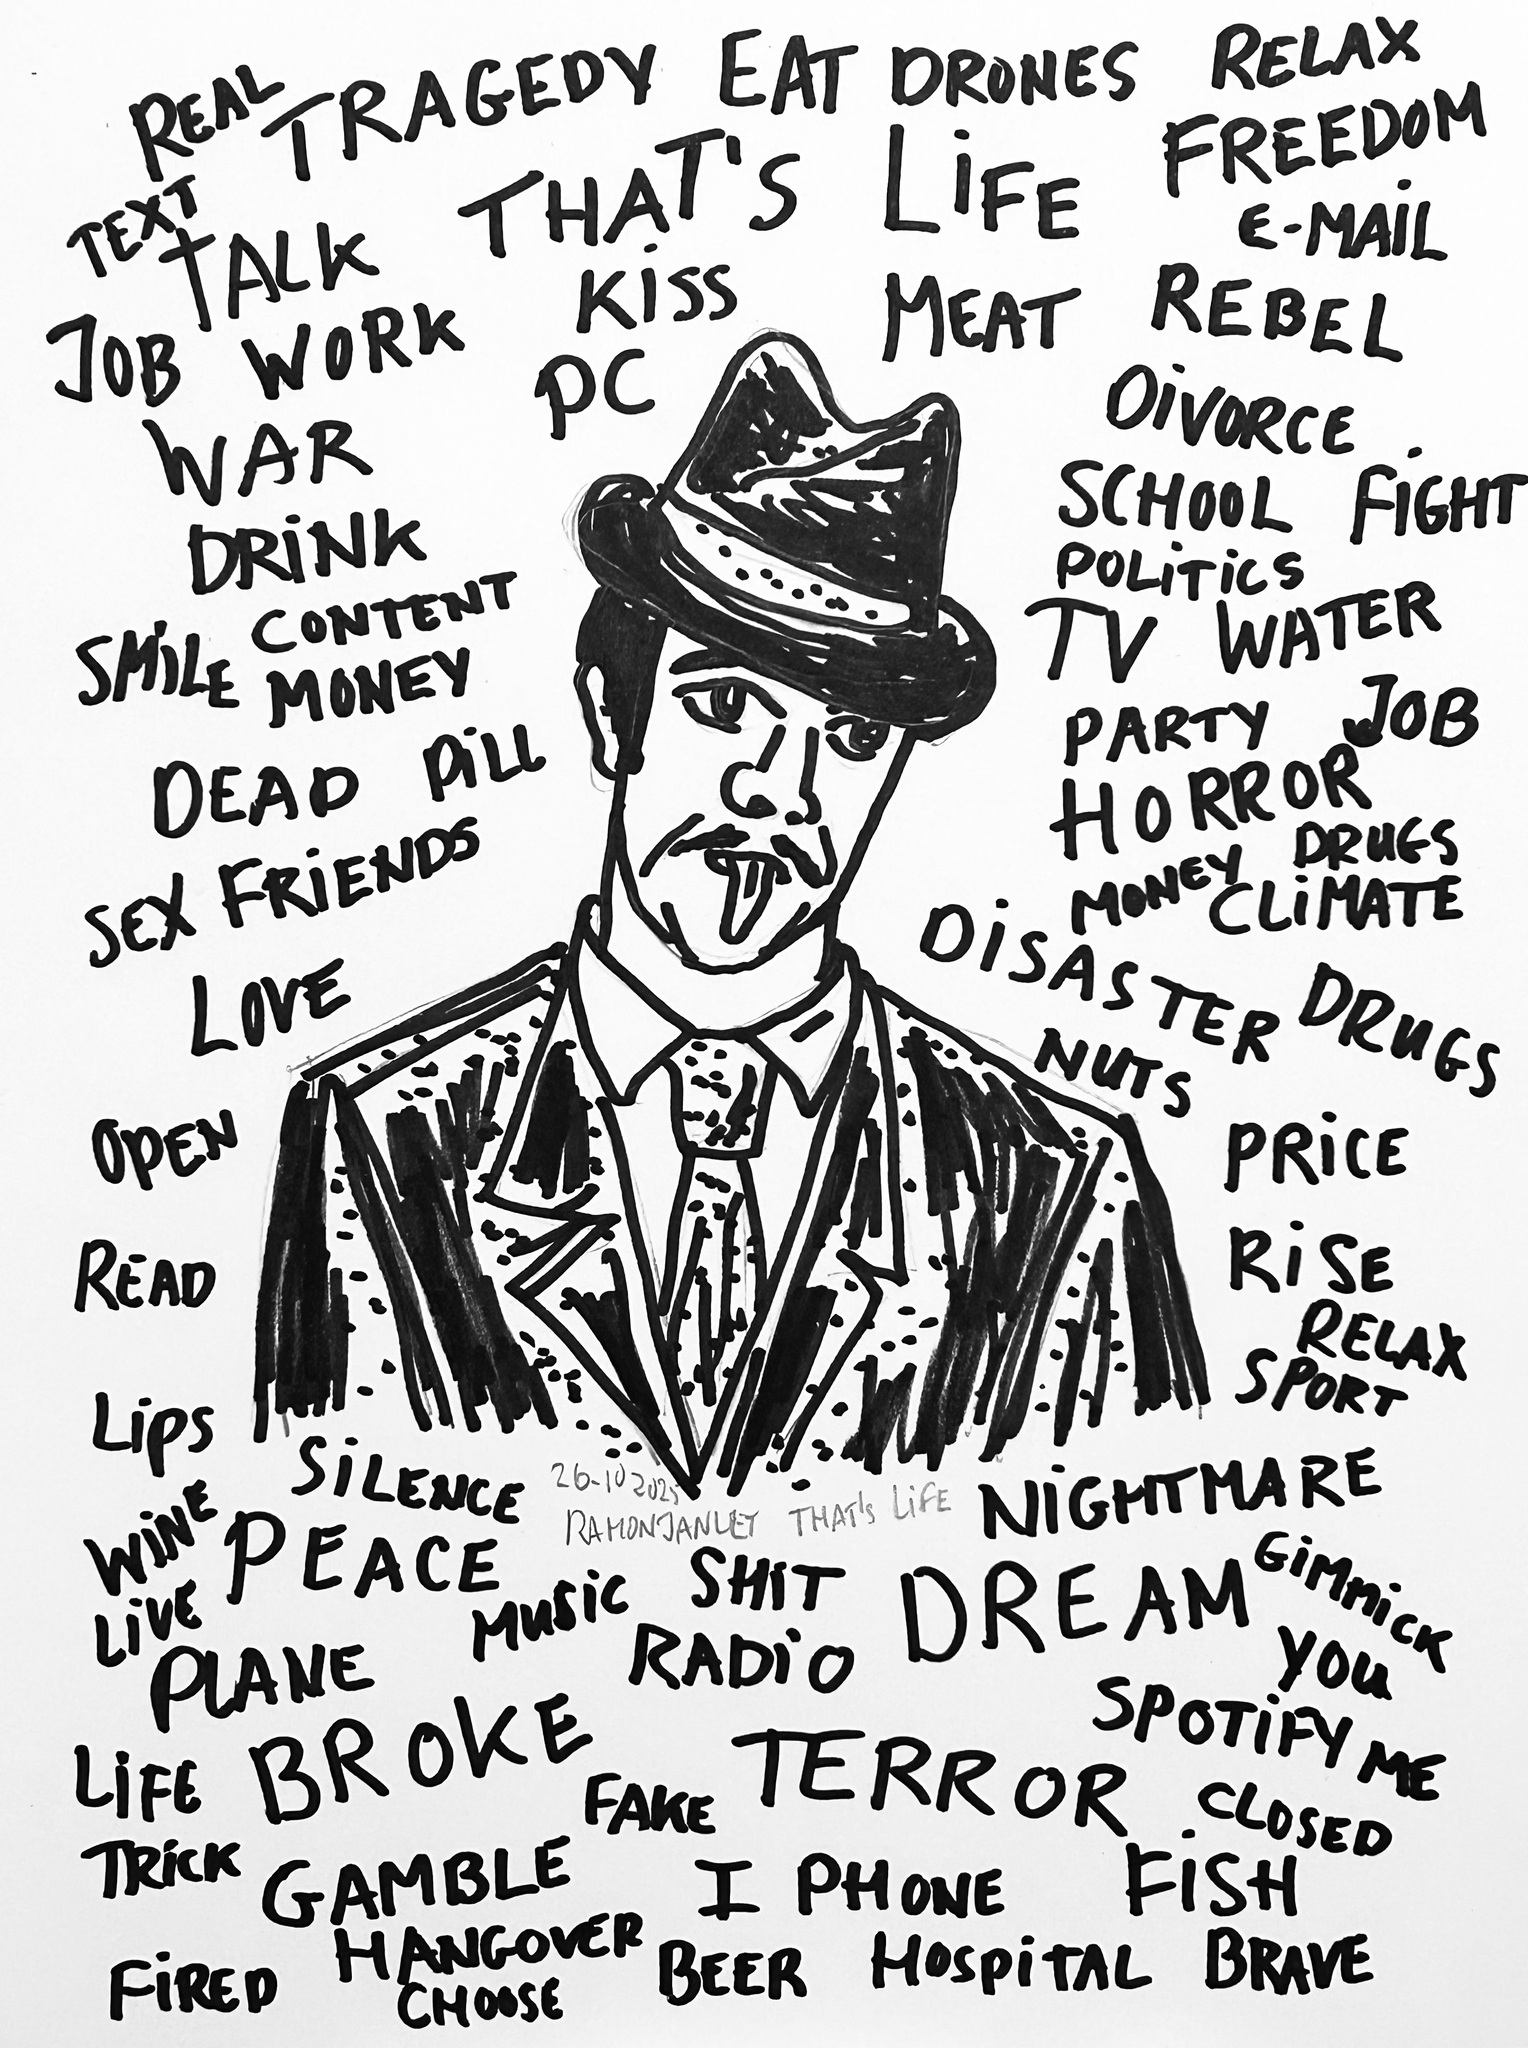 REAL TRAGEDY EAT DRONES RELAX
THAT'S LIFE FREEDOM
TEXT TALK E-MAIL
KISS MEAT REBEL
JOB WORK PC
DIVORCE
WAR
SCHOOL FIGHT
DRINK
POLITICS
CONTENT
TV WATER
SMILE MONEY
PARTY JOB
DEAD PILL
HORROR
DRUGS
SEX FRIENDS
MONEY CLIMATE
DISASTER DRUGS
LOVE
NUTS
OPEN
PRICE
READ
RISE
RELAX
SPORT
LIPS
SILENCE
26-10 2025
NIGHTMARE
RAMONJANLET THAT'S LIFE
WINE PEACE
SHIT DREAM GIMMICK
LIVE MUSIC
PLANE RADIO YOU
SPOTIFY ME
LIFE BROKE TERROR
FAKE CLOSED
TRICK GAMBLE I PHONE FISH
HANGOVER
FIRED BEER HOSPITAL BRAVE
CHOOSE